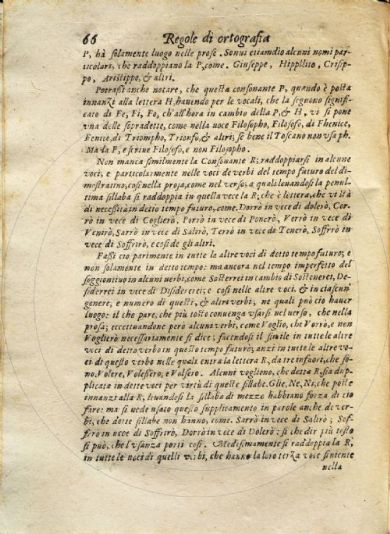 66 Regole di ortografia
P, hà solamente luogo nelle prose. Sonui etiamdio alcuni nomi par-
ticolari, che raddoppiano la P, come. Giuseppe, Hippolito, Crisip-
po, Aristippo, & altri.
Potrassi anche notare, che questa consonante P, quando è posta
innanze alla lettera H, hauendo per le vocali, che la seguono signifi-
cato di Fe, Fi, Fo, ch'all'hora in cambio della P, & H, vi si pone
vna delle sopradette, come nella uoce Filosopho, Filosofo, di Phenice,
Fenice, di Triompho, Trionfo, & altri, se bene il Toscano non vsa ph.
Ma da P, e scriue Filosofo, e non Philosopho.
Non manca similmente la Consonante R; raddoppiarsi in alcune
voci, e particolarmente nelle voci de verbi del tempo futuro del di-
mostratiuo, così nella prosa, come nel verso, a quali leuandosi la penul-
tima sillaba si raddoppia in questa vece la R; che è lettera, che vi stà
di necessità in detto tempo futuro, come. Dorrò in vece di dolerò, Cor-
rò in vece di Coglierò, Porrò in vece di Ponerò, Verrò in vece di
Venirò, Sarrò in vece di Salirò, Terrò in vece di Tenerò, Soffrirò in
vece di Soffrirò, e così de gli altri.
Fassi ciò parimente in tutte le altre voci di detto tempo futuro, e
non solamente in detto tempo: ma ancora nel tempo imperfetto del
soggiontiuo in alcuni verbi, come Sosterrei in cambio di Sostenerei, De-
siderrei in vece di Desidererei; e così nelle altre voci, & in ciascun
genere, e numero di questi, & altri verbi, ne quali può ciò hauer
luogo: il che pare, che più tosto conuenga vsarsi nel verso, che nella
prosa; eccettuandone però alcuni verbi, come Voglio, che Vorrò, e non
Voglierò necessariamente si dice, facendosi il simile in tutte le altre
voci di detto verbo in questo tempo futuro; anzi in tutte le altre vo-
ci di questo verbo nelle quali entra lettera R, da tre in fuori, che so-
no. Volere, Volessero, e Volsero. Alcuni vogliono, che detta R, sia du-
plicata in dette voci per virtù di queste sillabe. Glie, Ne, Ni, che poste
innanzi alla R, leuandosi la sillaba di mezzo habbiano forza di ciò
fire: ma si uede usato questo supplimento in parole anche de ver-
bi, che dette sillabe non hanno, come. Sarrò in vece di Salirò; Sof-
frirò in uece di Soffrirò, Dorrò in vece di Dolerò: si che dir più tosto
si può, che l'vsanza porti così. Medesimamente si raddoppia la R,
in tutte le uoci di quelli verbi, che hanno la loro terza voce finiente
nella